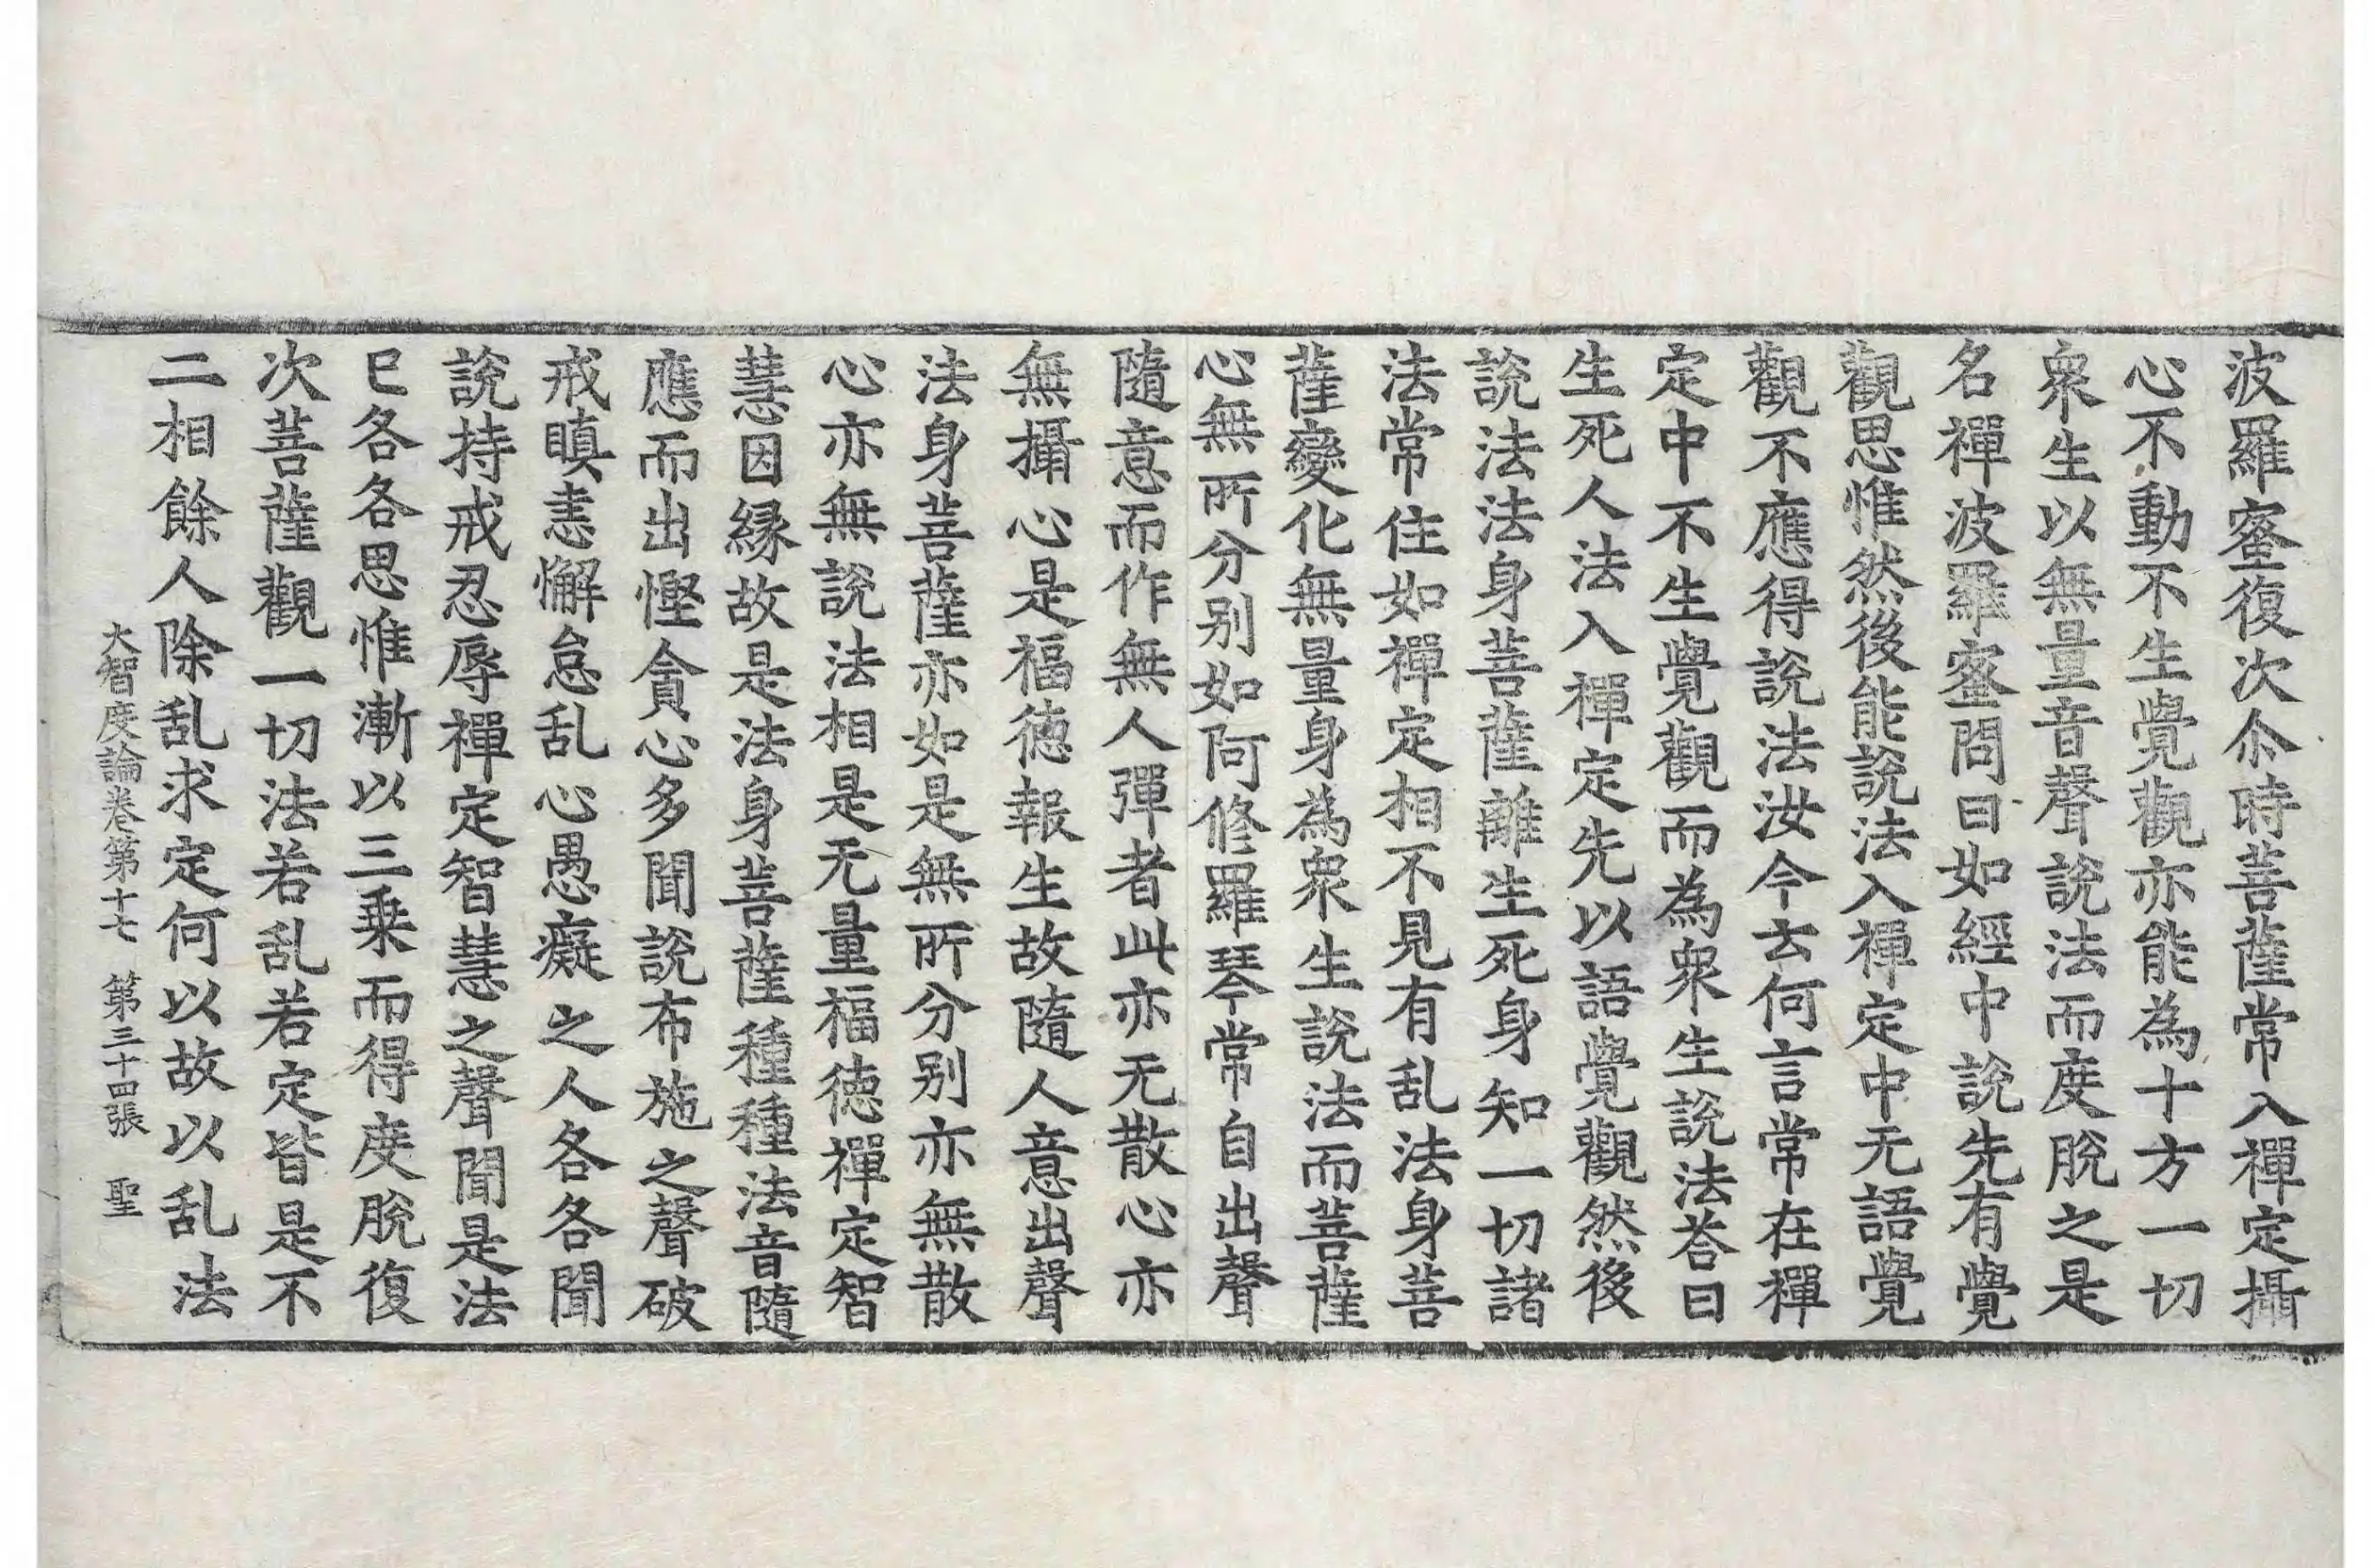 波羅蜜復次尒時菩薩常入禪定攝
心不動不生覺觀亦能為十方一切
衆生以無量音聲說法而度脫之是
名禪波羅蜜問曰如經中說先有覺
觀思惟然後能說法入禪定中无語覺
觀不應得說法汝今云何言常在禪
定中不生覺觀而為衆生說法荅曰
生死人法入禪定先以語覺觀然後
說法法身菩薩離生死身知一切諸
法常住如禪定相不見有乱法身菩
薩變化無量身為衆生說法而菩薩
心無所分別如阿修羅琴常自出聲
隨意而作無人彈者此亦无散心亦
無攝心是福德報生故隨人意出聲
法身菩薩亦如是無所分別亦無散
心亦無說法相是无量福德禪定智
慧因緣故是法身菩薩種種法音隨
應而出慳貪心多聞說布施之聲破
戒瞋恚懈怠乱心愚癡之人各各聞
說持戒忍辱禪定智慧之聲聞是法
已各各思惟漸以三乗而得度脫復
次菩薩觀一切法若乱若定皆是不
二相餘人除乱求定何以故以乱法
大智度論卷第十七 第三十四張 聖